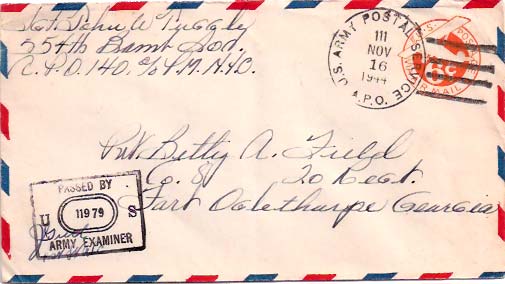 Sgt. John W Tuggle
554th Bomb Sqd.
A.P.O. 140. c/o P.M. N.Y.C.
U.S. ARMY POSTAL SERVICE
111
NOV
16
1944
A.P.O.
U.S. POSTAGE
6c
AIR MAIL
Pvt. Betty A. Field
Co. 8 20 Regt.
Fort Oglethorpe Georgia
PASSED BY
U 11979 S
ARMY EXAMINER